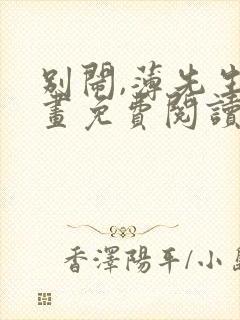 別鬧,薄先生
畫免費閱讀
香澤陽平/小島